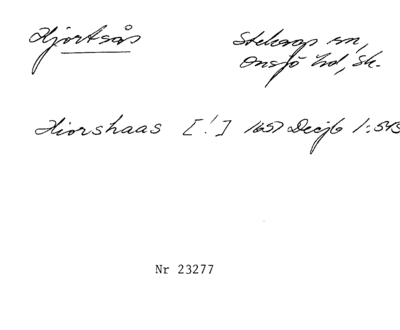 Hjortsås
Stehag sn,
Onsjö hd, Sk.
Hiorshaas [!] 1657 DecJb 1:545
Nr 23277